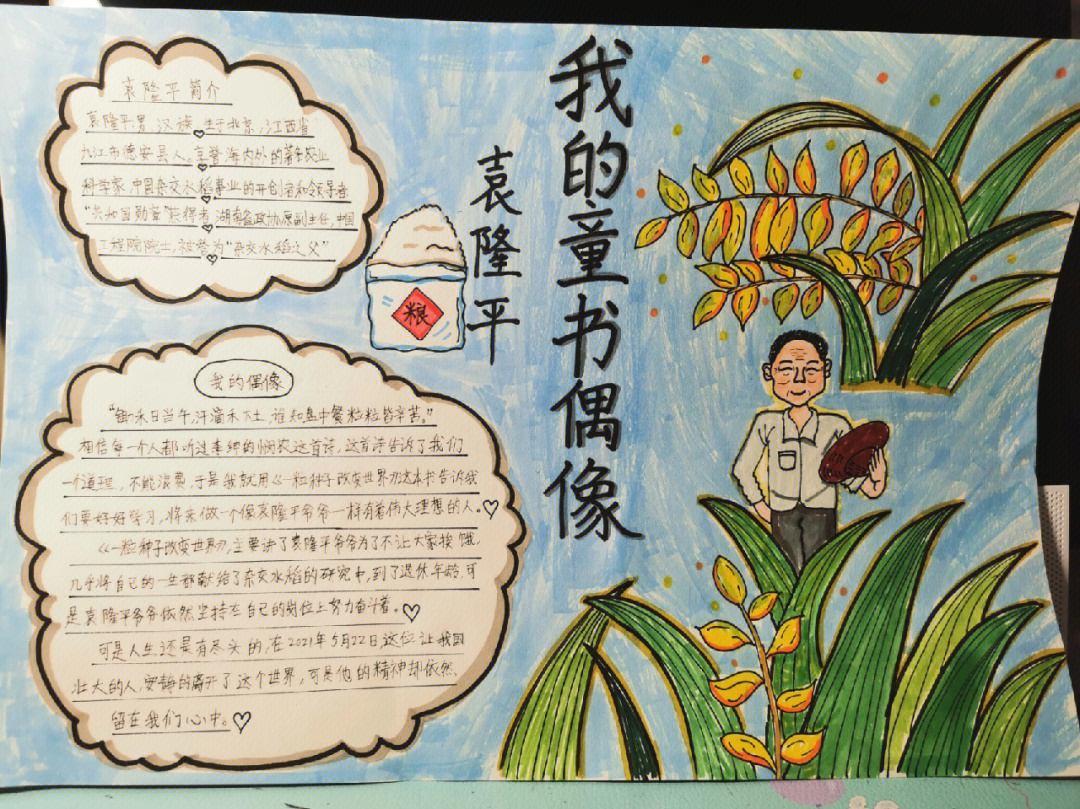 我的童书偶像
袁隆平
粮
袁隆平简介
袁隆平,男,汉族,生于北京,江西省
九江市德安县人。享誉海内外的著名农业
科学家,中国杂交水稻事业的开创者和领导者
“共和国勋章”获得者,湖南省政协原副主任,中国
工程院院士,被誉为“杂交水稻之父”
我的偶像
“锄禾日当午,汗滴禾下土,谁知盘中餐粒粒皆辛苦。”
相信每一个人都听过李绅的悯农这首诗,这首诗告诉了我们
一个道理,不能浪费,于是我就用《一粒种子改变世界》这本书告诉我
们要好好学习,将来做一个像袁隆平爷爷一样有着伟大理想的人。
《一粒种子改变世界》,主要讲了袁隆平爷爷为了不让大家挨饿,
几乎将自己的一生都献给了杂交水稻的研究中,到了退休年龄,可
是袁隆平爷爷依然坚持在自己的岗位上努力奋斗着。
可是人生还是有尽头的,在2021年5月22日,这位让我国
壮大的人,安静的离开了这个世界,可是他的精神却依然
留在我们心中。